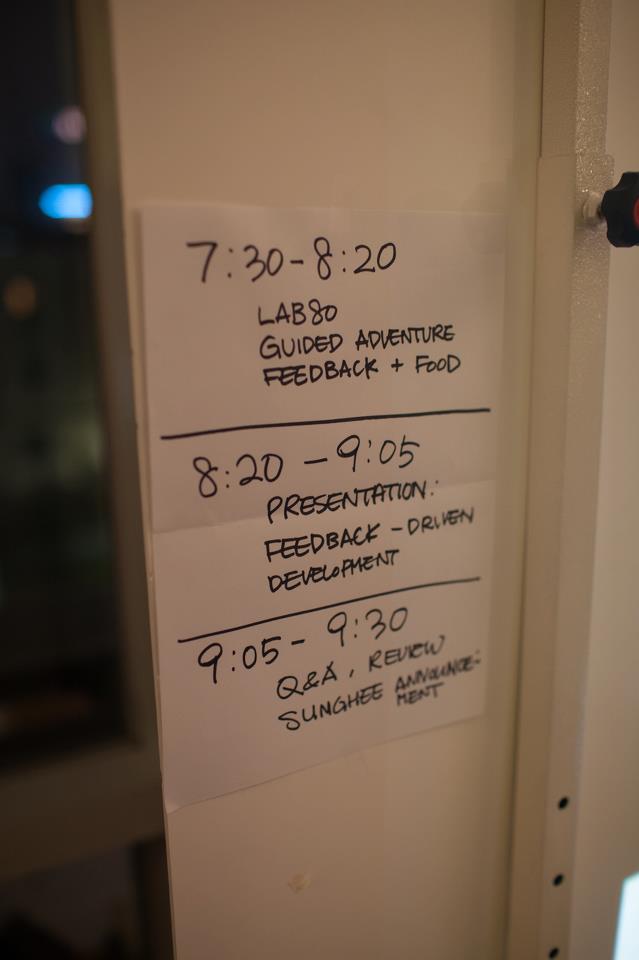 7:30 - 8:20
LAB80
GUIDED ADVENTURE
FEEDBACK + FOOD
8:20 - 9:05
PRESENTATION:
FEEDBACK - DRIVEN
DEVELOPMENT
9:05 - 9:30
Q&A, REVIEW
SUNGHEE ANNOUNCE-
MENT